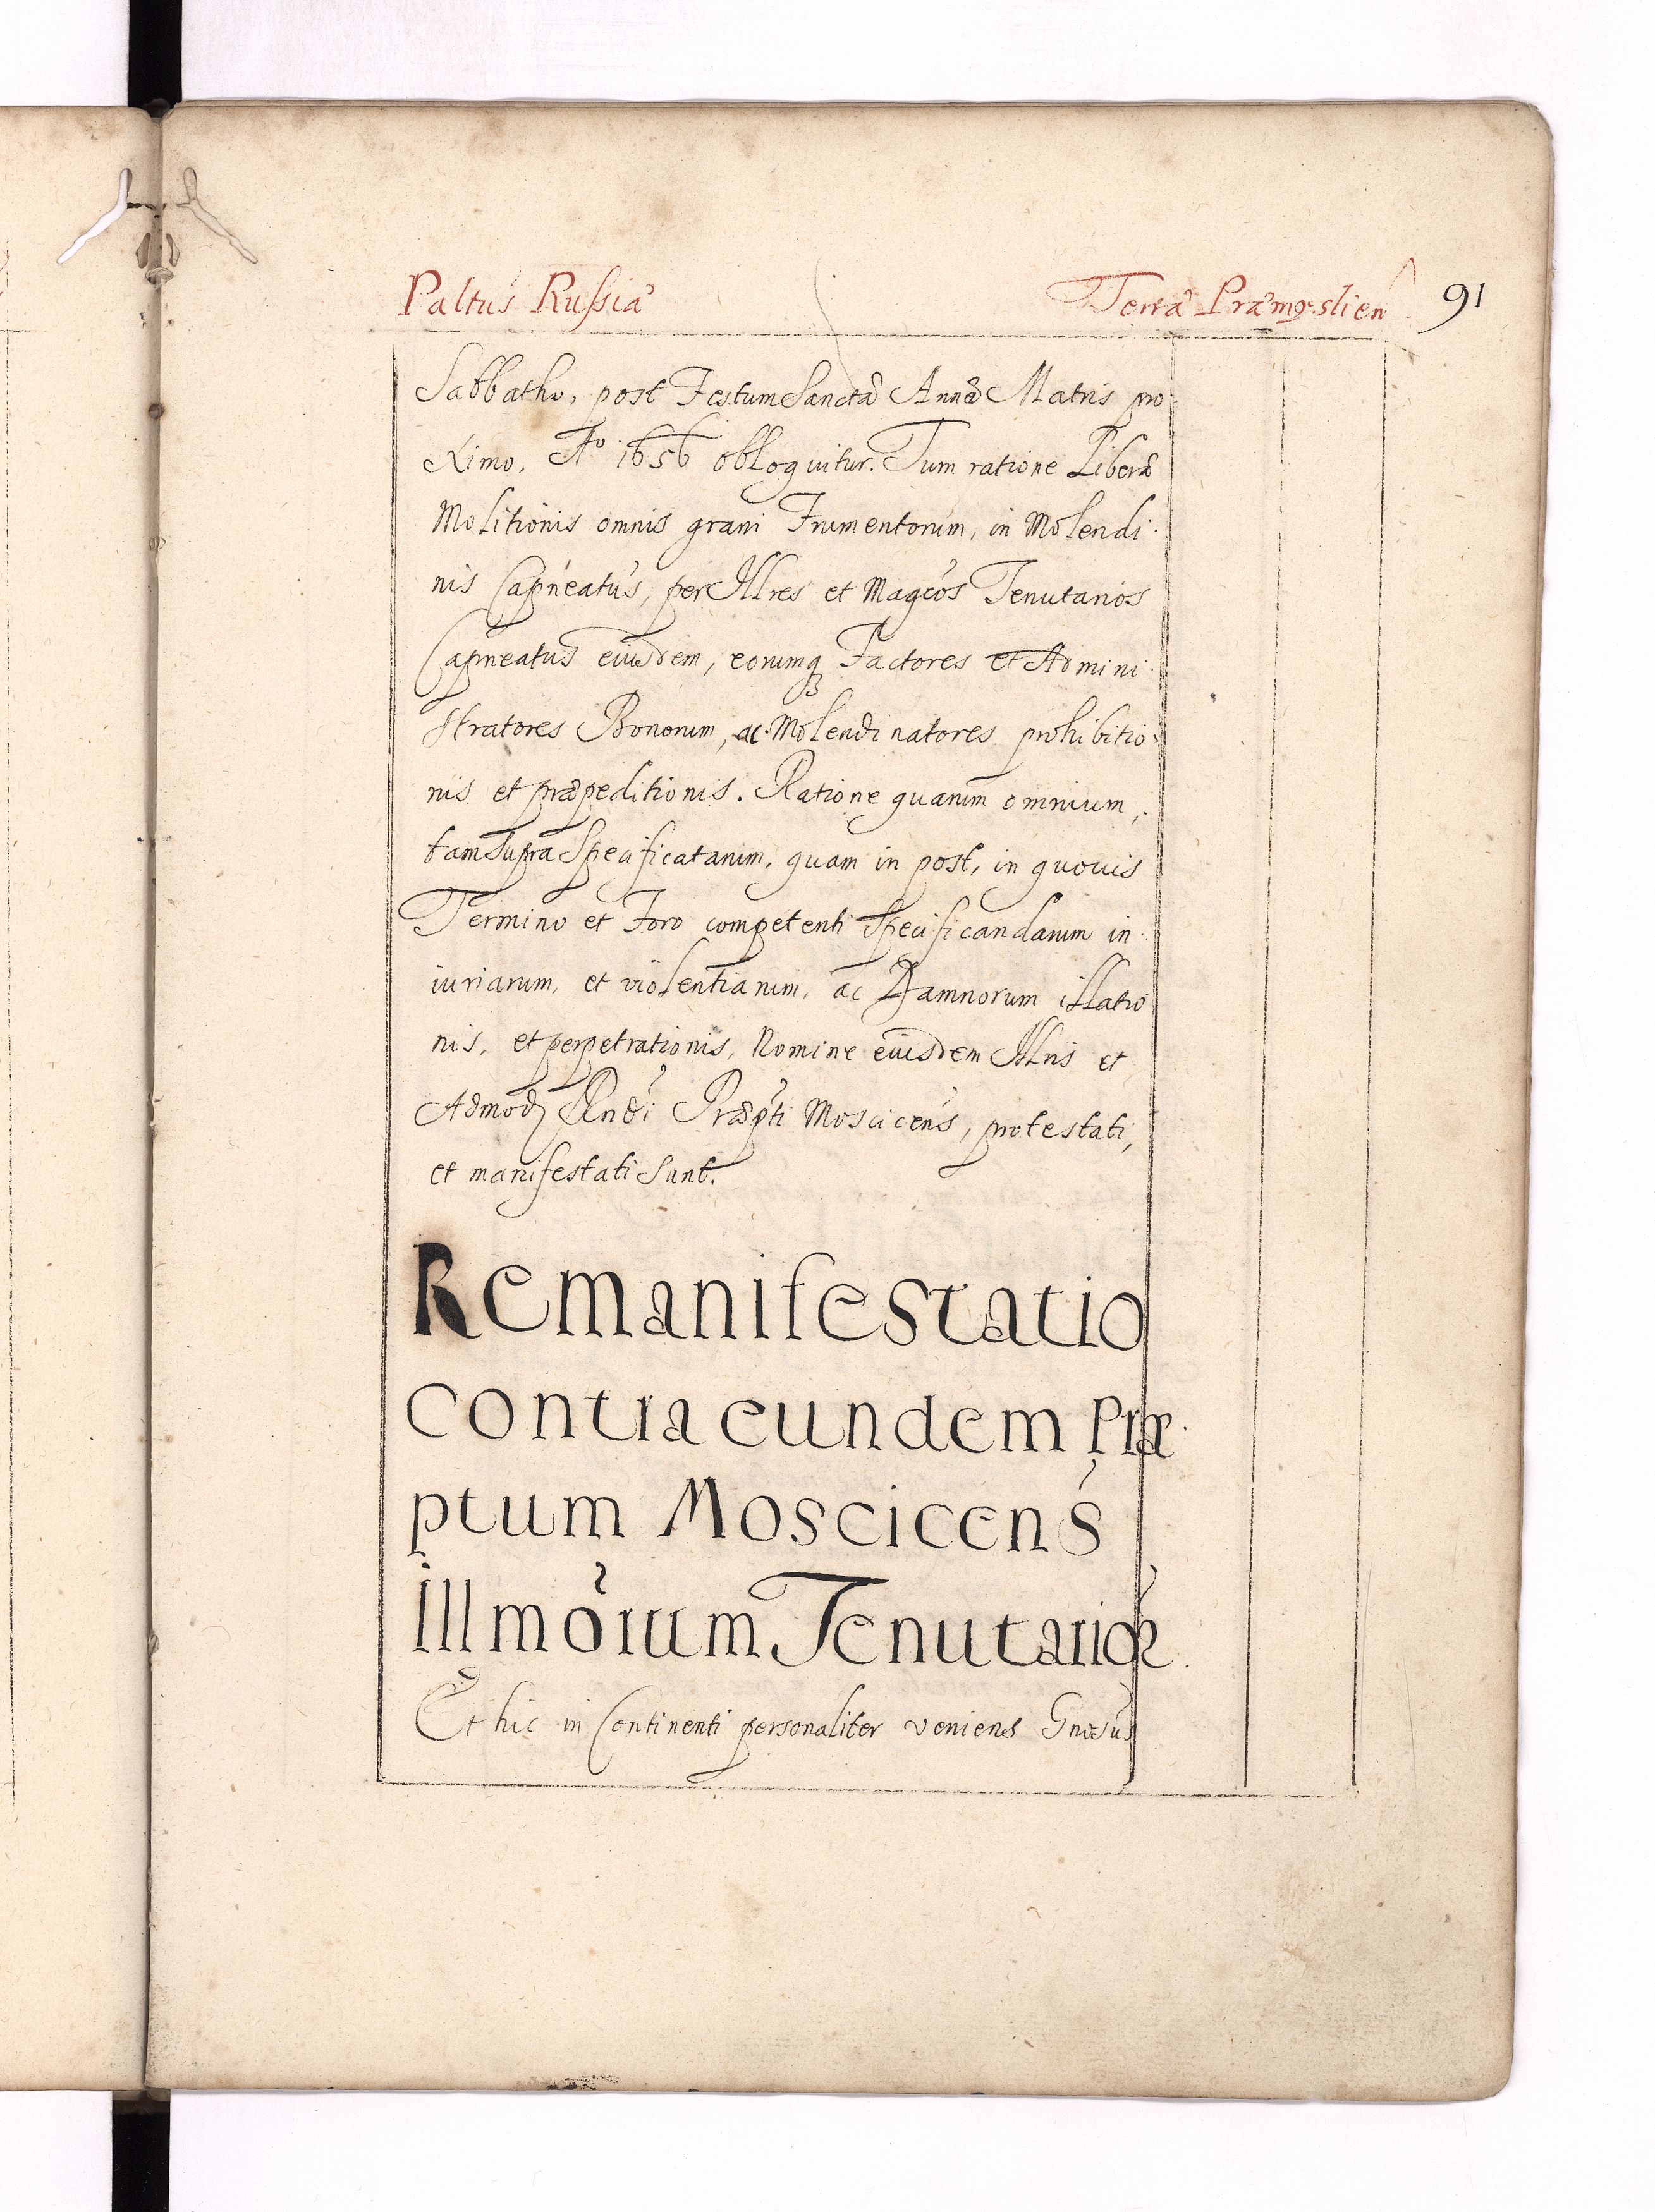 Paltûs Russiæ Terræ Præmysliens̑ 91
Sabbatho, post Festum Sanctæ Annæ Matris pro
ximo, Aº 1656 obloquitur. Tum ratione Liberæ
Molitionis omnis grani Frumentorum, in Molendi
nis Capneatus, per Illres et Magcos Tenutarios
Capneatus eiusdem, eorumq Factores et Admini
stratores Bonorum, ac Molendinatores prohibitio
nis et præpeditionis. Ratione quarum omnium,
tam supra Specificatarum, quam in post, in quovis
Termino et Foro competenti Specificandarum in
iuriarum, et violentiarum, ac Damnorum illatio
nis, et perpetrationis, Nomine eiusdem Illris et
Admodz Rndi Præpti Moscicens, protestati,
et manifestati sunt.
Remanifestatio
contra eundem Præ
ptum Moscicens
Illmorum Tenutarior
Et hic in Continenti personaliter veniens Gnosus